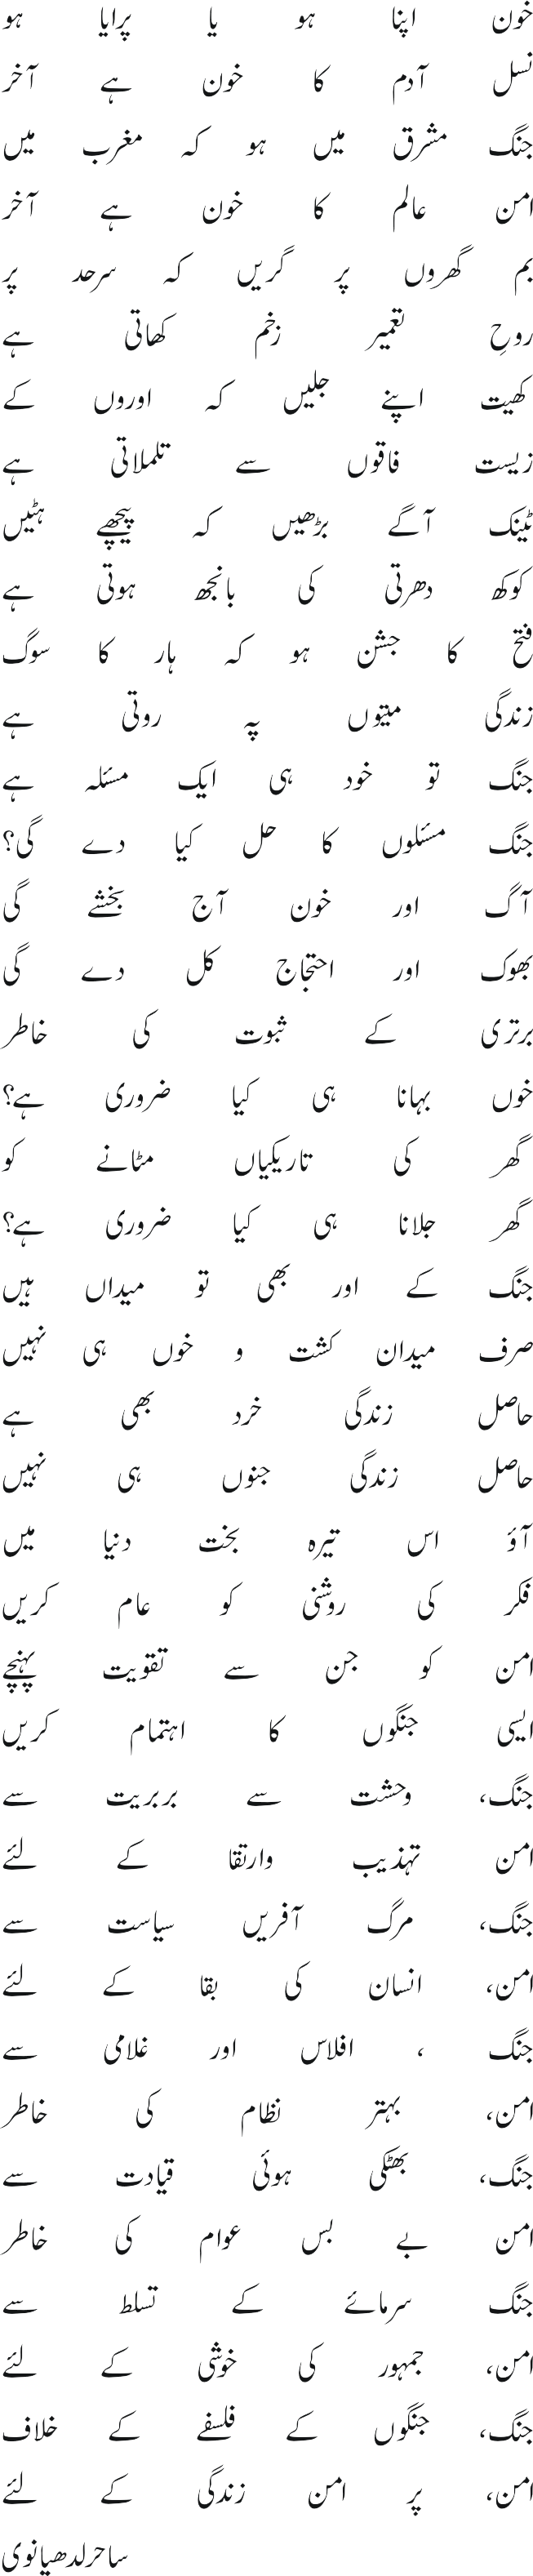 خون اپنا ہو یا پرایا ہو
نسل آدم کا خون ہے آخر
جنگ مشرق میں ہو کہ مغرب میں
امن عالم کا خون ہے آخر
بم گھروں پر گریں کہ سرحد پر
روحِ تعمیر زخم کھاتی ہے
کھیت اپنے جلیں کہ اوروں کے
زیست فاقوں سے تلملاتی ہے
ٹینک آگے بڑھیں کہ پیچھے ہٹیں
کوکھ دھرتی کی بانجھ ہوتی ہے
فتح کا جشن ہو کہ ہار کا سوگ
زندگی میتوں پہ روتی ہے
جنگ تو خود ہی ایک مسئلہ ہے
جنگ مسئلوں کا حل کیا دے گی؟
آگ اور خون آج بخشے گی
بھوک اور احتجاج کل دے گی
برتری کے ثبوت کی خاطر
خوں بہانا ہی کیا ضروری ہے؟
گھر کی تاریکیاں مٹانے کو
گھر جلانا ہی کیا ضروری ہے؟
جنگ کے اور بھی تو میداں ہیں
صرف میدان کشت و خوں ہی نہیں
حاصل زندگی خرد بھی ہے
حاصل زندگی جنوں ہی نہیں
آؤ اس تیرہ بخت دنیا میں
فکر کی روشنی کو عام کریں
امن کو جن سے تقویت پہنچے
ایسی جنگوں کا اہتمام کریں
جنگ، وحشت سے بربریت سے
امن تہذیب وارتقا کے لئے
جنگ، مرگ آفریں سیاست سے
امن، انسان کی بقا کے لئے
جنگ ، افلاس اور غلامی سے
امن، بہتر نظام کی خاطر
جنگ، بھٹکی ہوئی قیادت سے
امن بے بس عوام کی خاطر
جنگ سرمائے کے تسلط سے
امن، جمہور کی خوشی کے لئے
جنگ، جنگوں کے فلسفے کے خلاف
امن، پر امن زندگی کے لئے
ساحرلدھیانوی